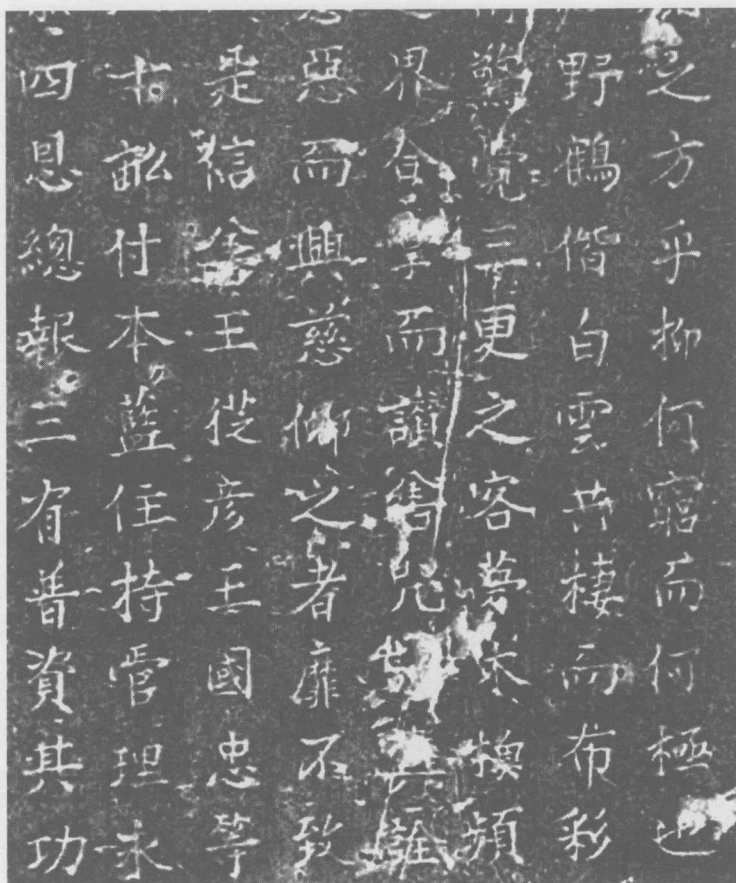 之方乎抑何窮而何極也
野鶴偕白雲共棲而布彩
驚覺三更之客夢未換頻
界合掌而讚嘗兕
惡而興慈仰之者靡不致
是信舍王從彦王國忠等
木訟付本藍住持管理永
四恩總報三有普資其功